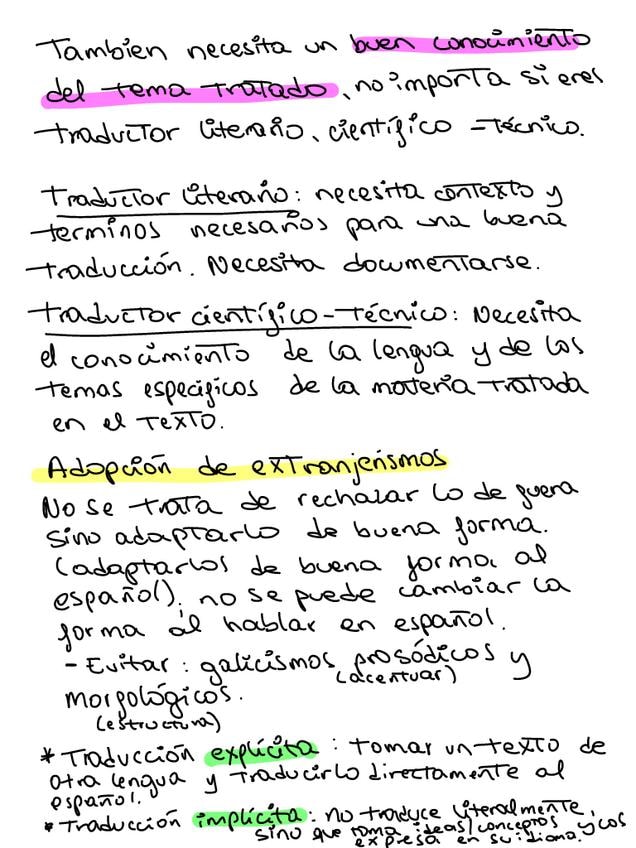 Tambien necesita un buen conocimiento
del tema tratado, no importa si eres
traductor literario, científico-técnico.
Traductor literario: necesita contexto y
terminos necesarios para una buena
traducción. Necesita documentarse.
traductor científico-técnico: Necesita
el conocimiento de la lengua y de los
temas específicos de la materia tratada
en el texto.
Adopción de extranjerismos
No se trata de rechazar lo de fuera
sino adaptarlo de buena forma.
(adaptarlos de buena forma al
español), no se puede cambiar la
forma al hablar en español.
- Evitar: galicismos prosódicos y
(acentuar)
morfológicos.
(estructura)
* Traducción explícita: tomar un texto de
otra lengua y traducirlo directamente al
español.
* Traducción implícita: no traduce literalmente,
sino que toma ideas/conceptos y los
expresa en su idioma.